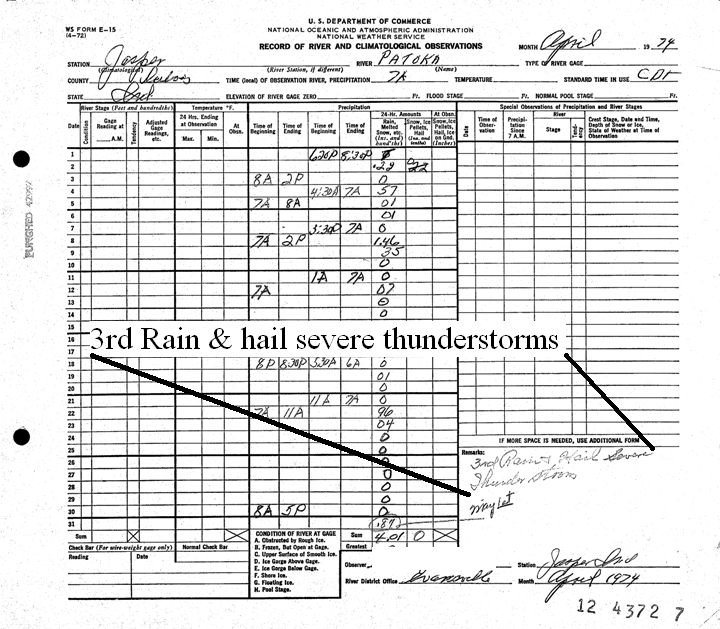 U. S. DEPARTMENT OF COMMERCE
WS FORM E-15
(4-72)
NATIONAL OCEANIC AND ATMOSPHERIC ADMINISTRATION
NATIONAL WEATHER SERVICE
RECORD OF RIVER AND CLIMATOLOGICAL OBSERVATIONS
MONTH April 1974
STATION Jasper
(Climatological) (River Station, if different)
RIVER PATOKA
(Name)
TYPE OF RIVER GAGE
COUNTY Dubois
TIME (local) OF OBSERVATION RIVER, PRECIPITATION 7A TEMPERATURE STANDARD TIME IN USE CDT
STATE Ind
ELEVATION OF RIVER GAGE ZERO Fr. FLOOD STAGE Fr. NORMAL POOL STAGE Fr.
River Stage (Feet and hundredths) Temperature °F. Precipitation Special Observations of Precipitation and River Stages
Date Condition Gage Reading at A.M. Tendency Adjusted Gage Readings, etc.
24 Hrs. Ending at Observation Max. Min. At Obsn.
Time of Beginning Time of Ending Time of Beginning Time of Ending
24-Hr. Amounts Rain, Melted Snow, etc. (Ins. and hund'ths) Snow, Ice Pellets, Hail (Ins. and tenths)
At Obsn. Snow, Ice Pellets, Hail, Ice on Gnd. (Inches)
Date Time of Observation Precipitation Since 7 A.M. River Stage Tendency
Crest Stage, Date and Time, Depth of Snow or Ice, State of Weather at Time of Observation
1 620P 8:30P
2 .22
3 8A 2P 0
4 4:30A 7A 57
5 7A 8A 01
6 01
7 3:30P 7A 0
8 7A 2P 1.46
9 35
10 0
11 1A 7A 0
12 7A 07
13 0
14 0
15
3rd Rain & hail severe thunderstorms
16
17
18 8P 830P 530A 6A 0
19 01
20 0
21 11A 7A 0
22 7A 11A 96
23 04
24 0
25 0
26 0
27 0
28 0
29 0
30 8A 5P 0
31 (.87)
Sum Sum 4.01 0
IF MORE SPACE IS NEEDED, USE ADDITIONAL FORM
Remarks:
3rd Rain & Hail Severe
Thunder Storm
May 1st
Check Bar (For wire-weight gage only) Normal Check Bar
Reading Date
CONDITION OF RIVER AT GAGE
A. Obstructed by Rough Ice.
B. Frozen, But Open at Gage.
C. Upper Surface of Smooth Ice.
D. Ice Gorge Above Gage.
E. Ice Gorge Below Gage.
F. Shore Ice.
G. Floating Ice.
H. Pool Stage.
Greatest
Observer
River District Office Evansville
Station Jasper Ind
Month April 1974
12 4372 7